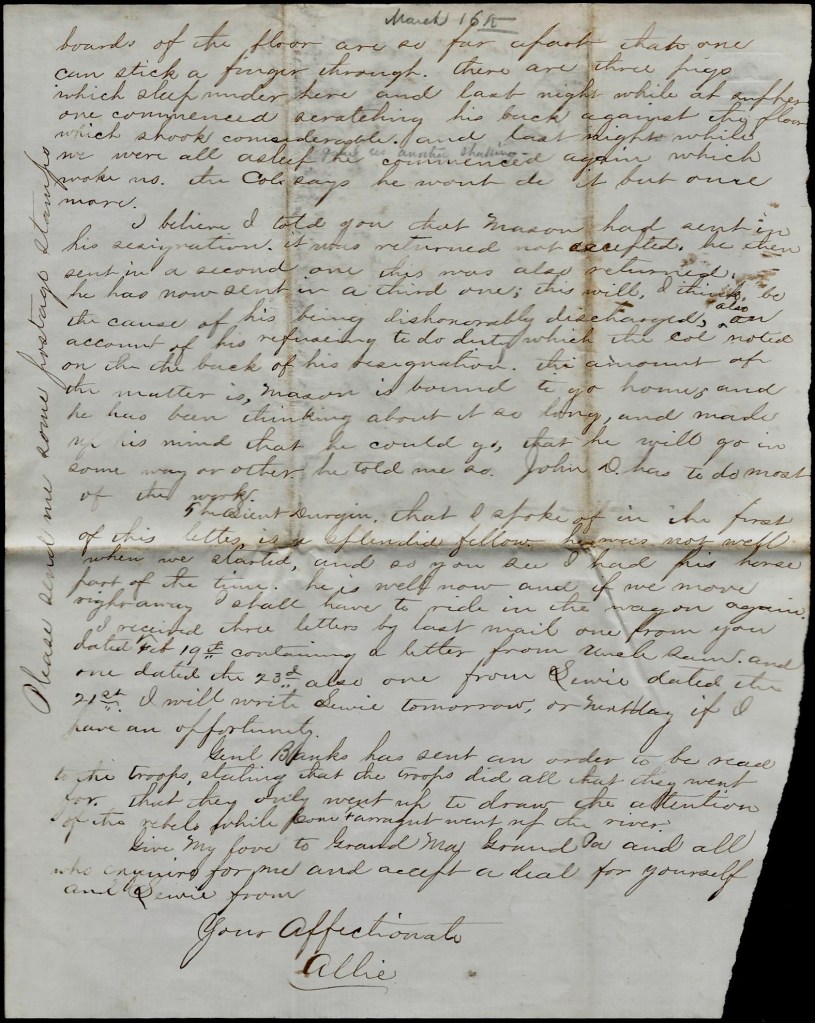 March 16th
boards of the floor are so far apart that one
can stick a finger through. there are three pigs
which sleep under here and last night while at supper
one commenced scratching his back against the floor
which shook considerable. and last night while
gave us another shaking
we were all asleep he commenced again which
woke us. the Col says he wont do it but once
more.
I believe I told you that Mason had sent in
his resignation. it was returned not accepted. he then
sent in a second one this was also returned.
he has now sent in a third one; this will, I think, be
the cause of his being dishonorably discharged, also on
account of his refuseing to do duty which the col noted
on the the back of his resignation. the amount of
the matter is, Mason is bound to go home, and
he has been thinking about it so long, and made
up his mind that he could go, that he will go in
some way or other. he told me so. John D. has to do most
of the work.
Durgin, that I spoke of in the first
of this letter, is a splendid fellow. he was not well
when we started, and so you see I had his horse
part of the time. he is well now and if we move
right away I shall have to ride in the wagon again.
I received three letters by last mail one from you
dated Feb 19th containing a letter from Uncle Sam. and
one dated the 23d also one from Sewie dated the
21st. I will write Sewie tomorrow, or next day if I
have an opportunity.
Genl Banks has sent an order to be read
to the troops, stating that the troops did all that they went
for. that they only went up to draw the attention
of the rebels while Com Farragut went up the river.
Give My love to Grand Ma, Grand Pa and all
who enquire for me and accept a deal for yourself
and Sewie from
Your Affectionate
Allie
Please send me some postage stamps